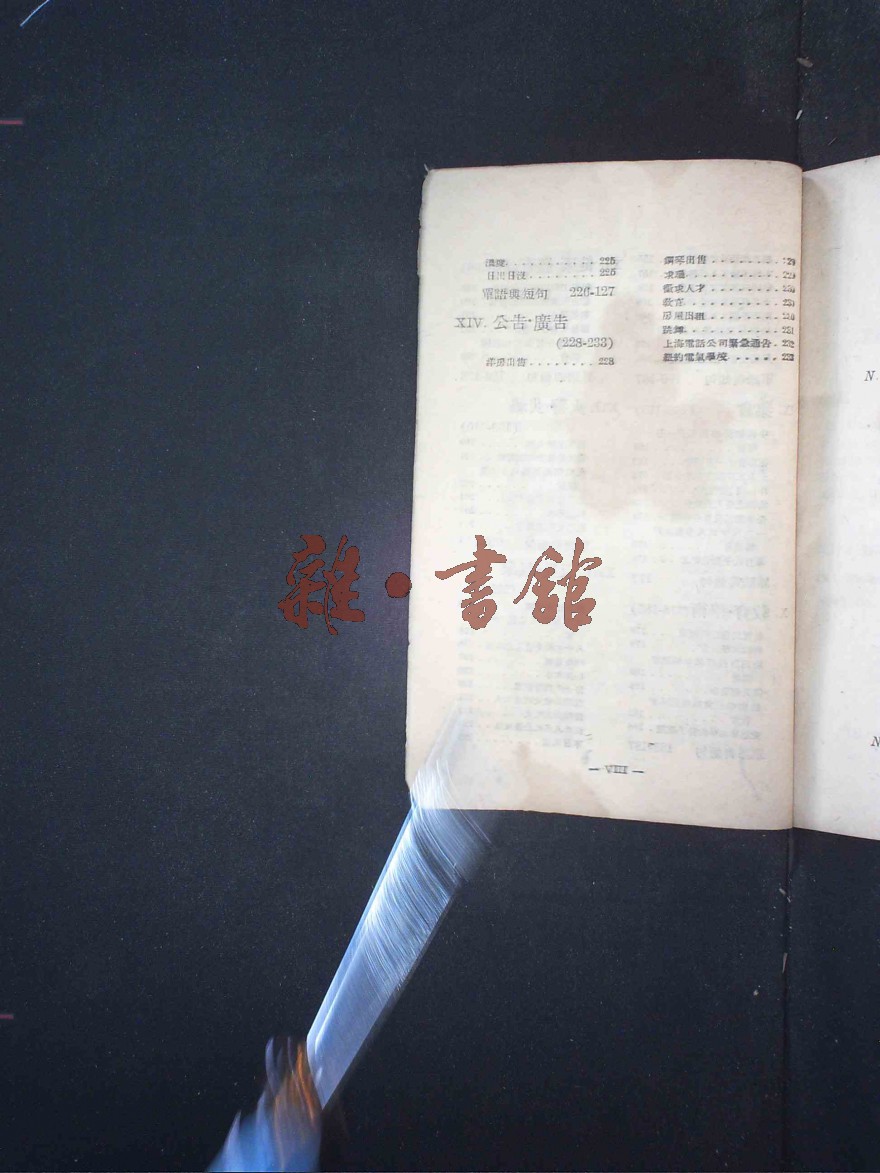 溫度. . . . . . . . . . . 225
日出日沒 . . . . . . . . . 225
單語與短句 226-127
XIV. 公告·廣告
(228-233)
洋房出售 . . . . . . . . . 228
鋼琴出售 . . . . . . . . 229
求職 . . . . . . . . . . . 229
徵求人才 . . . . . . . . 230
教育 . . . . . . . . . . . 230
房屋出租 . . . . . . . . 230
跳舞 . . . . . . . . . . . 231
上海電話公司緊急通告 . 232
紐約電氣學校 . . . . . . 233
雜·書館
— VIII —
N.
N